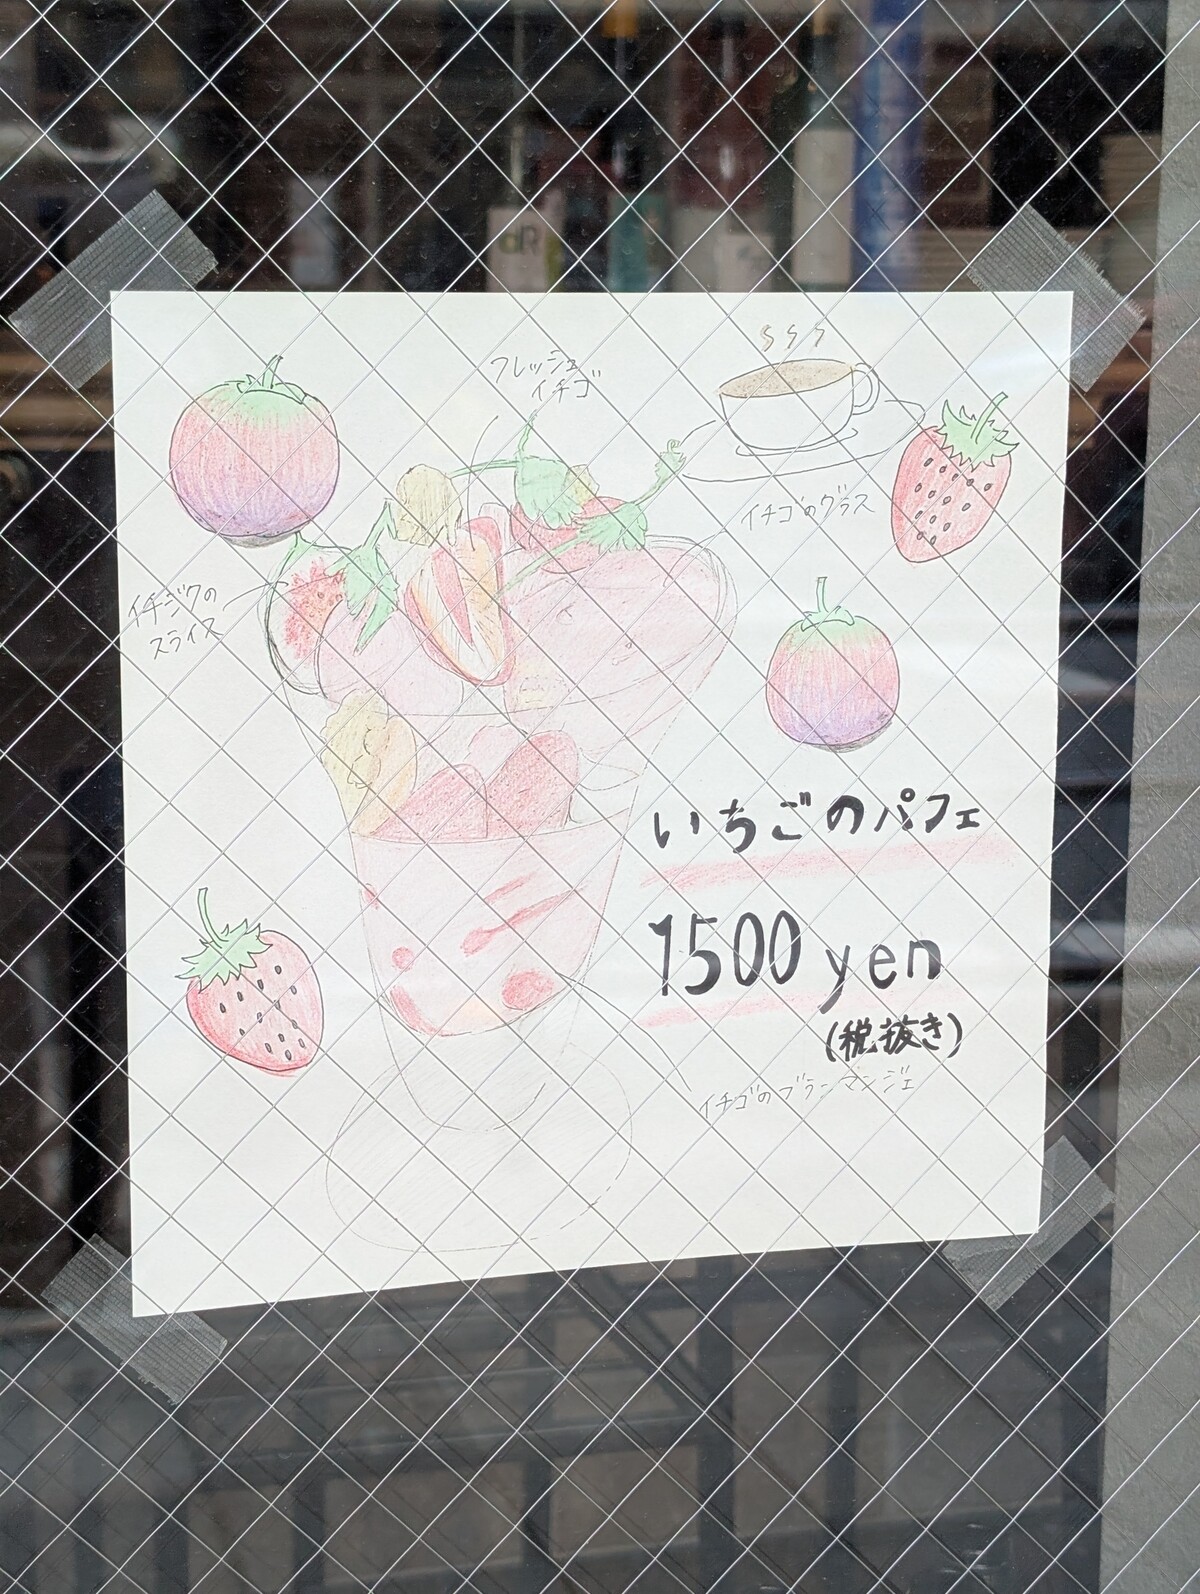 フレッシュ
イチゴ
イチゴのグラス
イチジクの
スライス
いちごのパフェ
1500 yen
(税抜き)
イチゴのブランマンジェ
dR